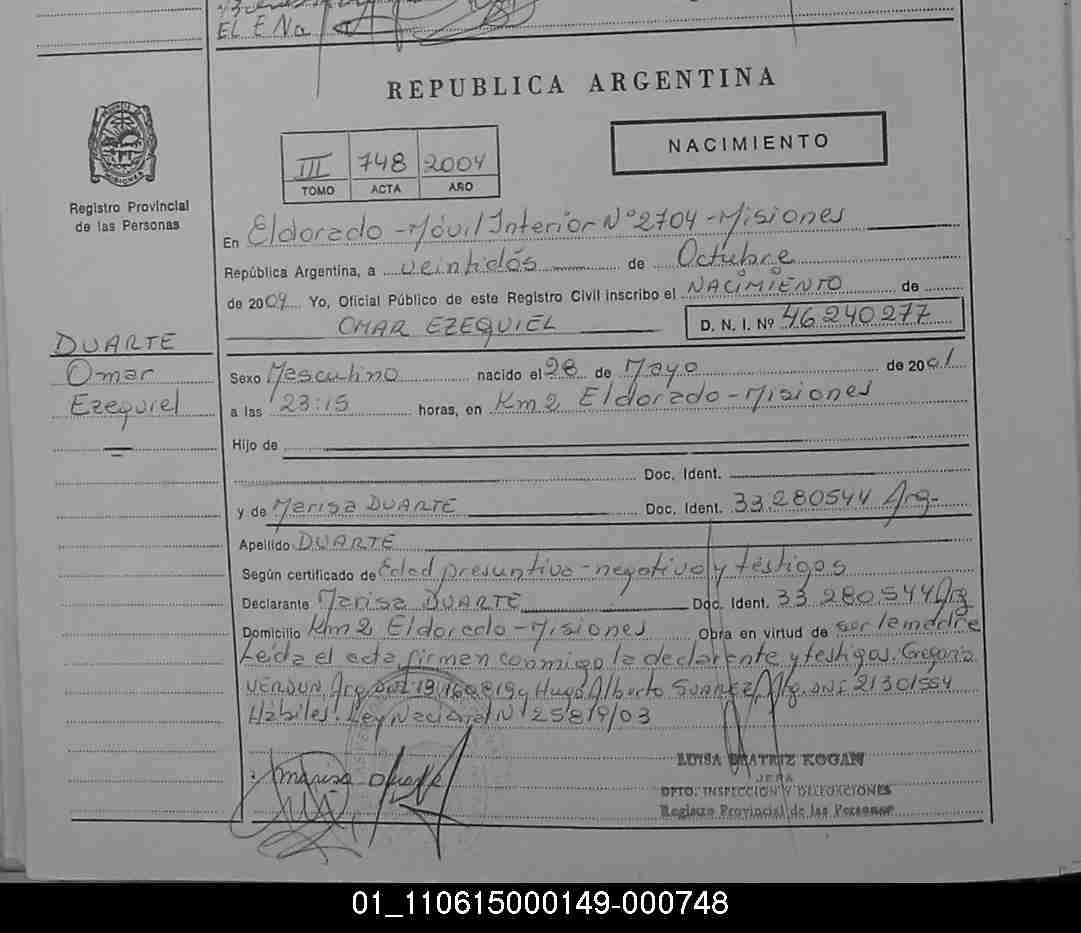 EL ENa
REPUBLICA ARGENTINA
NACIMIENTO
III 748 2004
TOMO ACTA AÑO
Registro Provincial
de las Personas
En Eldorado - Móvil Interior N° 2704 - Misiones
República Argentina, a veintidós de Octubre
de 2004 Yo, Oficial Público de este Registro Civil inscribo el NACIMIENTO de
OMAR EZEQUIEL D. N. I. Nº 46240277
DUARTE
Omar
Ezequiel
Sexo Masculino nacido el 28 de Mayo de 2001
a las 23:15 horas, en Km 2 Eldorado - Misiones
Hijo de
Doc. Ident.
y de Marisa DUARTE Doc. Ident. 33.280544 Arg-
Apellido DUARTE
Según certificado de Edad presuntiva - negativo y testigos
Declarante Marisa DUARTE Doc. Ident. 33.280.544 Arg
Domicilio Km 2 Eldorado - Misiones Obra en virtud de ser la madre
Leída el acta firman conmigo la declarante y testigos. Gregoria
VERDUN, Arg. DNI 19.160.819 y Hugo Alberto SUAREZ, Arg. DNI 21301554
Hábiles. Ley Nacional N° 25819/03
Marisa Duarte
LUISA BEATRIZ KOGAN
JEFA
DPTO. INSPECCION Y DELEGACIONES
Registro Provincial de las Personas
01_110615000149-000748